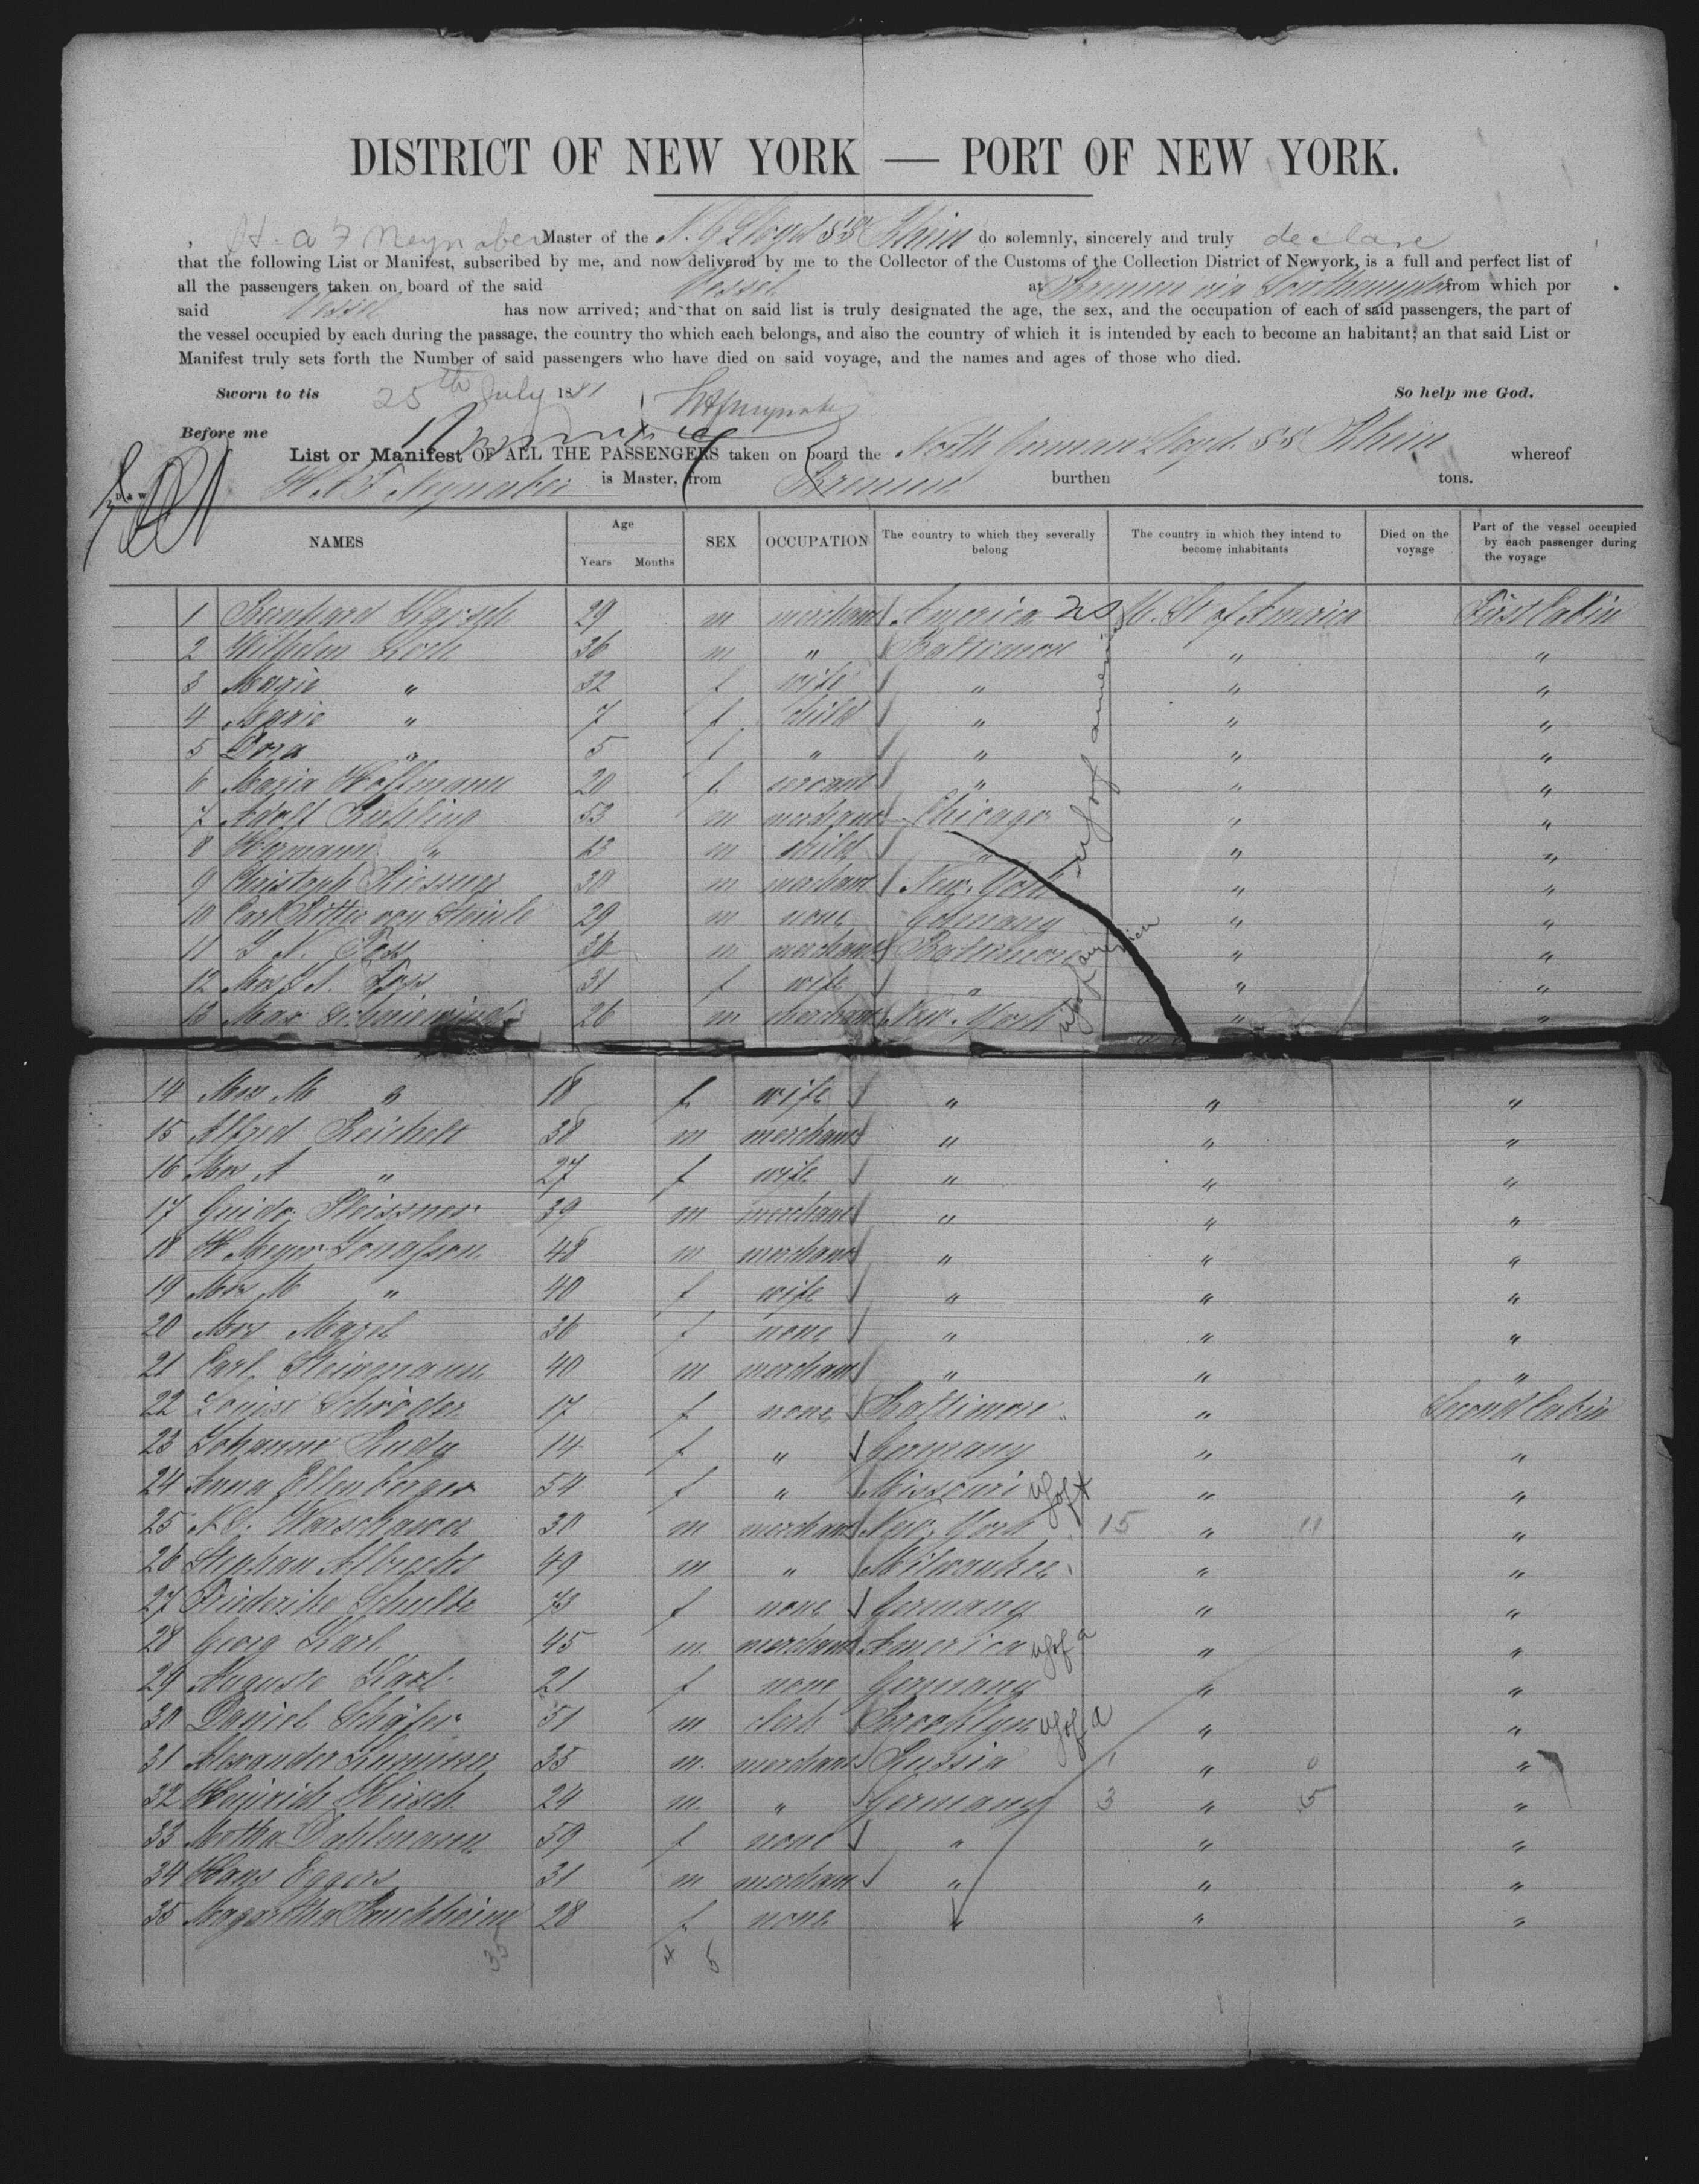 DISTRICT OF NEW YORK — PORT OF NEW YORK.
H. A F Neynaber Master of the N. G Lloyd SS Rhein do solemnly, sincerely and truly declare
that the following List or Manifest, subscribed by me, and now delivered by me to the Collector of the Customs of the Collection District of Newyork, is a full and perfect list of
all the passengers taken on board of the said Vessel at Bremen via Southampton from which por
said Vessel has now arrived; and that on said list is truly designated the age, the sex, and the occupation of each of said passengers, the part of
the vessel occupied by each during the passage, the country tho which each belongs, and also the country of which it is intended by each to become an habitant; an that said List or
Manifest truly sets forth the Number of said passengers who have died on said voyage, and the names and ages of those who died.
Sworn to tis 25th July 1881 HAFNeynaber So help me God.
Before me
List or Manifest OF ALL THE PASSENGERS taken on board the North German Lloyd SS Rhein whereof
H A F Neynaber is Master, from Bremen burthen tons.
NAMES Age Years Months SEX OCCUPATION The country to which they severally belong The country in which they intend to become inhabitants Died on the voyage Part of the vessel occupied by each passenger during the voyage
1 Bernhard 29 m merchant America U. St of America First Cabin
2 Wilhelm 36 m " Baltimore " "
3 Marie " 32 f wife " " "
4 Marie " 7 f child " " "
5 Dora " 5 f " " " "
6 Maria Hoffmann 20 f servant " " "
7 Adolf 53 m merchant Chicago " "
8 Hermann " 13 m child " " "
9 Christoph 30 m merchant New York " "
10 Carl Ritter von Steinle 29 m none Germany " "
11 L N. 36 m merchant Baltimore " "
12 Mrs L N. 31 f wife " " "
13 Max 26 m merchant New York " "
14 Mrs M " 18 f wife " " "
15 Alfred Reichelt 38 m merchant " " "
16 Mrs A " 27 f wife " " "
17 Guido Pleissner 39 m merchant " " "
18 M Meyer Jonasson 48 m merchant " " "
19 Mrs M " 40 f wife " " "
20 Mrs Mazel 36 f none " " "
21 Carl Steinmann 40 m merchant " " "
22 Louise Schröder 17 f none Baltimore " Second Cabin
23 Johanne Rudy 14 f " Germany " "
24 Anna Ellenberger 54 f " Missouri " "
25 N. S. Warschauer 30 m merchant New York 15 " 11 "
26 Stephan Albrecht 49 m " Milwaukee " "
27 Friederike Schulte 73 f none Germany " "
28 Georg Karl 45 m. merchant America " "
29 Auguste Karl 21 f none Germany " "
30 Daniel Schäfer 51 m clerk Brooklyn " "
31 Alexander 35 m. merchant Russia 1 " 0 "
32 Heinrich Hirsch 24 m. " Germany 3 " 5 "
33 Martha Dahlmann 59 f none " " "
34 Hans Eggers 31 m merchant " " "
35 Magaretha 28 f none " " "
35 4 5